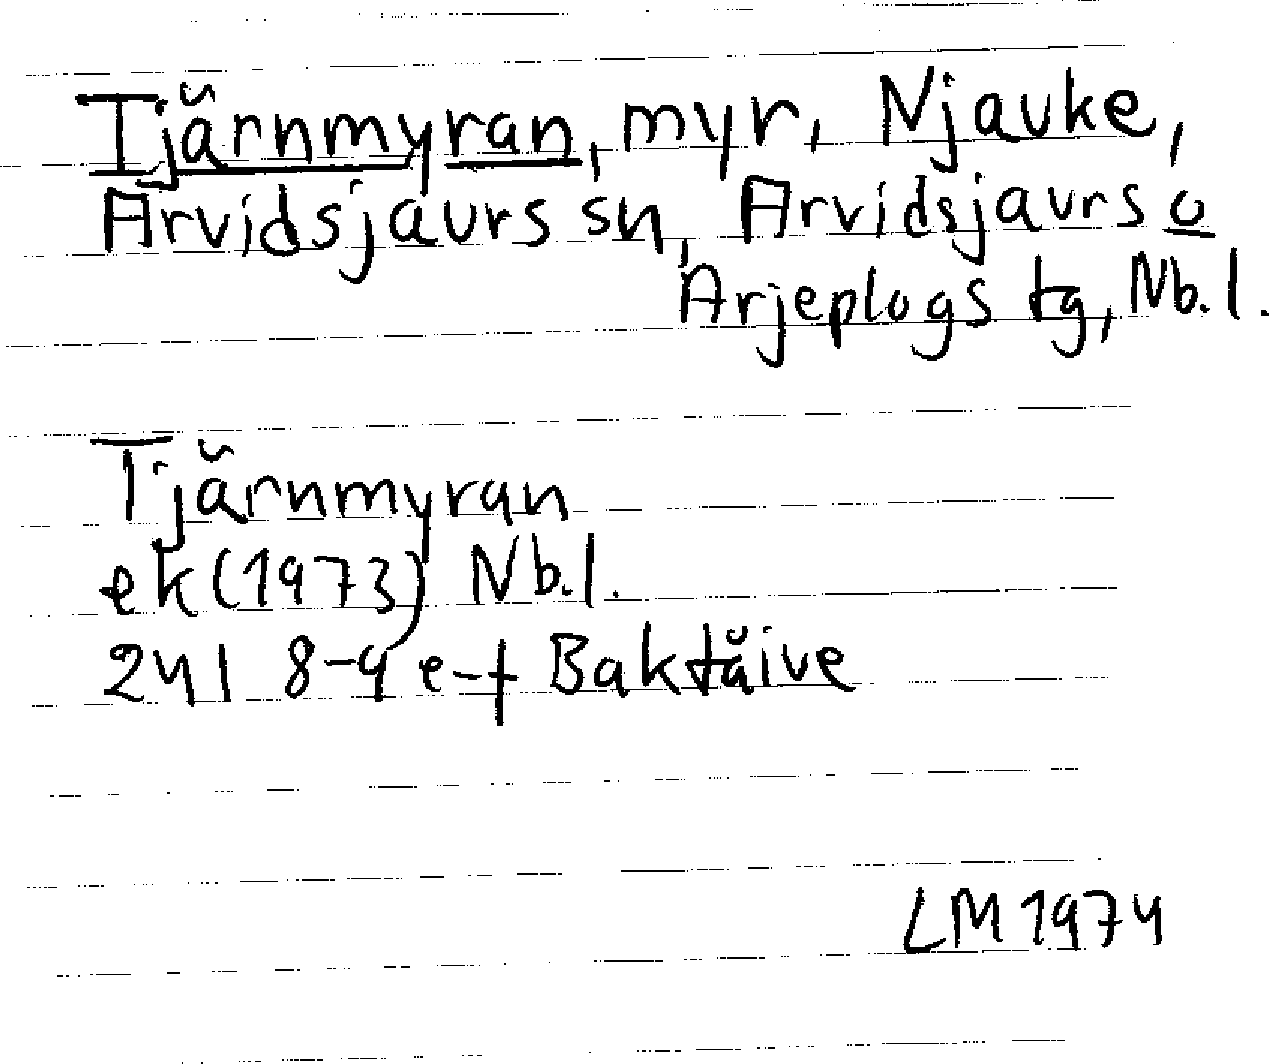 Tjärnmyran, myr, Njauke,
Arvidsjaurs sn, Arvidsjaurs o
Arjeplogs tg, Nb. l.
Tjärnmyran
ek (1973) Nb. l.
24 I 8-9 e-f Baktåive
LM 1974